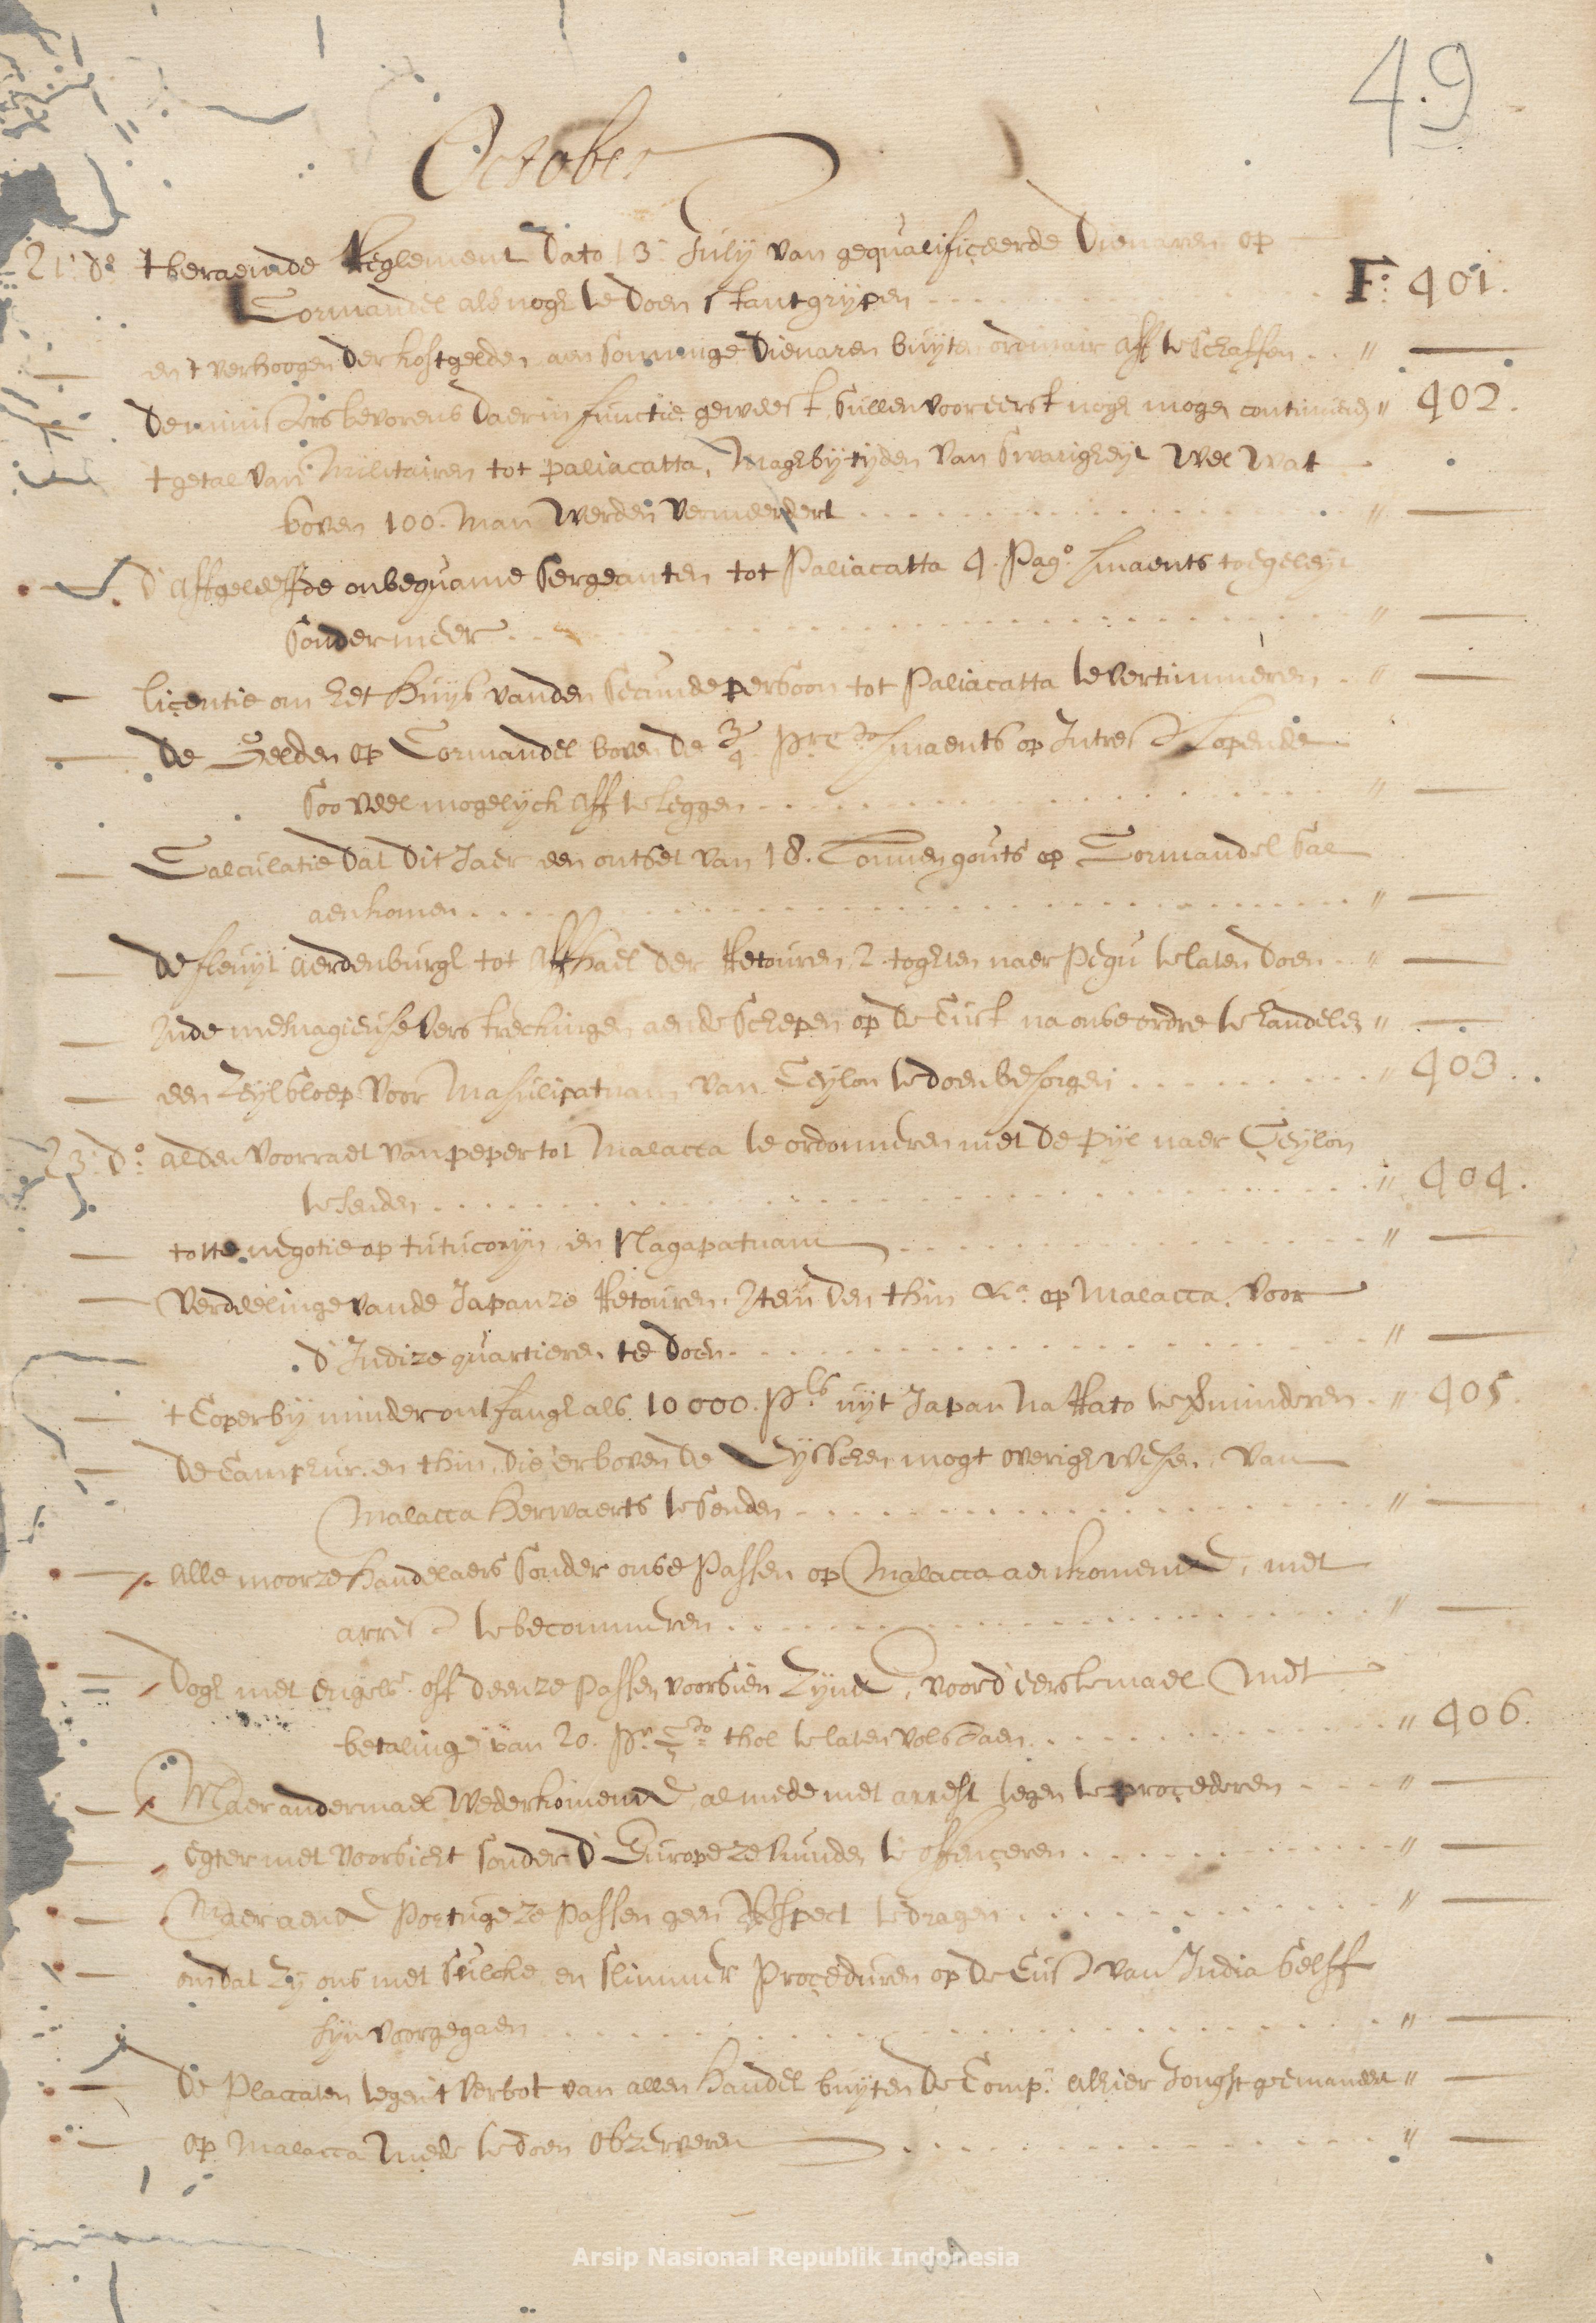 49
October
21. do t beraemde Reglement dato 13 July van gequalificeerde dienaren op
Cormandel alsnogh te doen stant grypen F: 401.
en t verhoogen der kostgelden aen sommige dienaren buyten ordinair aff te schaffen "
de ministers bevorens daer in functie geweest sullen voor eerst nogh mogen continueren " 402.
t getal van Militairen tot paliacatta, Magh by tyden van swarigheyt wel wat
boven 100. man werden vermeerdert "
d' affgeleeffde onbequame Sergeanten tot Paliacatta 4. Pago. smaents toegeleyt
sonder meer "
licentie om het huys van den secunde persoon tot Paliacatta te vertimmeren "
de Gelden op Cormandel boven de 3/4 pr Cto smaents op Intrest lopende
soo veel mogelyck aff te leggen "
Calculatie dat dit Jaer een ontset van 18. Tonnen gouts op Cormandel sal
aenkomen "
de fleuyt aerdenburgh tot affhael der Retouren 2. toghten naer Pegu te laten doen "
Inde mesnagieuse verstreckingen aen de Schepen op de Cust na onse ordre te handelen "
een Zeylsloep voor Masulipatnam van Ceylon te doen besorgen " 403.
23. do. al den voorraet van peper tot Malacca te ordonneren met de pyl naer Ceylon
te senden " 404.
totte negotie op tutucoryn en Nagapatnam "
Verdeelinge van de Japanze Retouren, Item den thin &a. op Malacca, voor
d' Indize quartieren te doen "
t Coper by minder ontfangh als 10000. pls. uyt Japan na Rato te verminderen " 405.
de Campher en thin, die er boven de Eysschen mogt overigh wesen, van
Malacca herwaerts te senden "
alle moorze handelaers sonder onse Passen op Malacca aenkomende, met
arrest te becommeren "
dogh met engels off deenze Passen voorsien zynde, voor d' eerstemael met
betaling van 20. pr. Cto thol te laten volstaen " 406.
Maer andermael wederkomende, al mede met arrest tegen te procederen "
egter met voorsicht sonder d' Europeze vrunden te offenceren "
Maer aende Portugeze Passen geen Respect te dragen "
om dat zy ons met sulcke en slimmer Proceduren op de Cust van India selff
syn voorgegaen "
de Placcaten tegen t verbot van allen handel buyten de Comp: alhier Jonghst geemaneert "
op Malacca mede te doen observeren "
Arsip Nasional Republik Indonesia